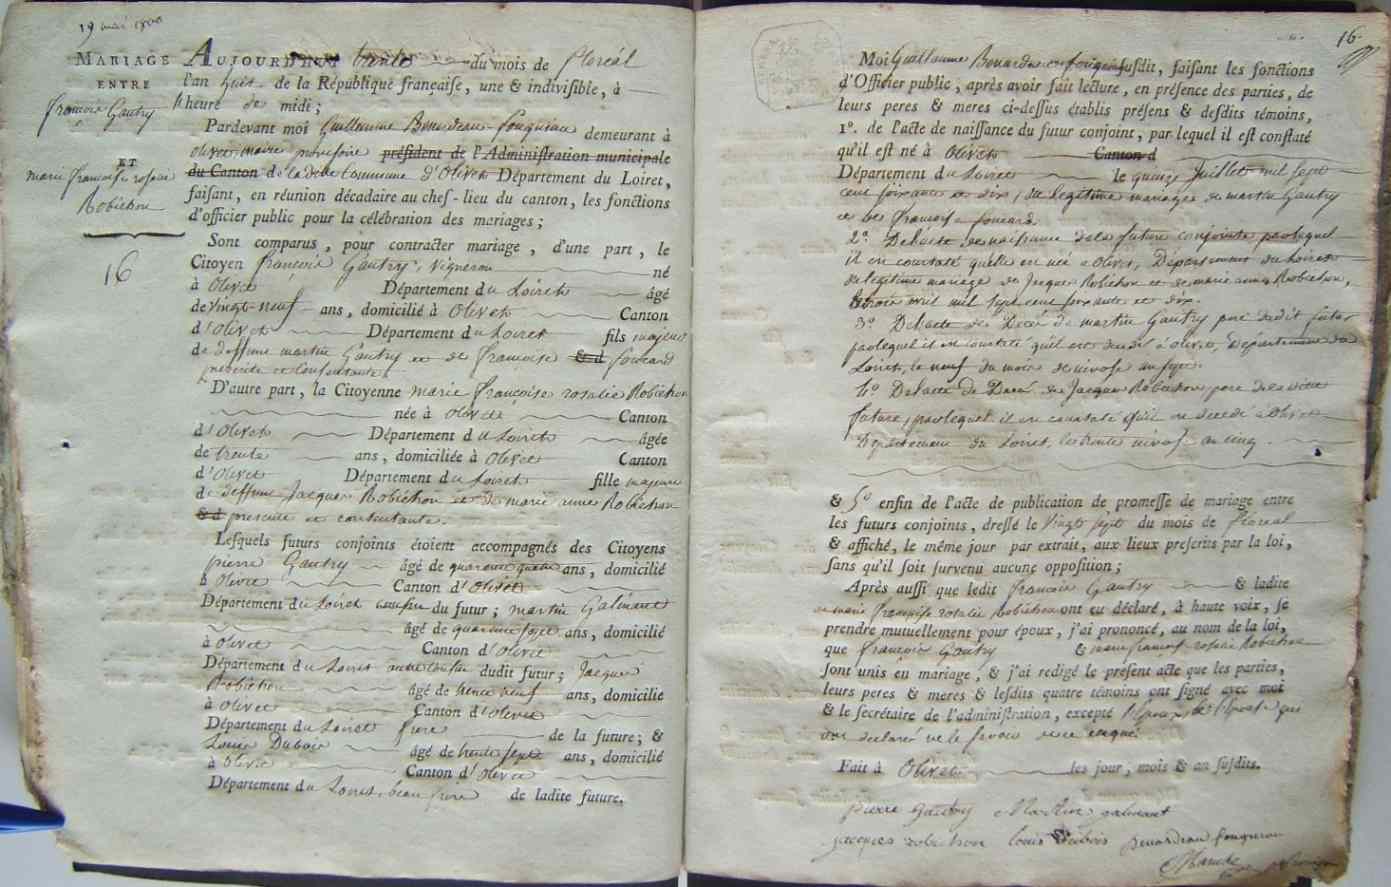 19 mai 1800
MARIAGE
ENTRE
françois Gautry
ET
marie françoise rosalie
Robichon
16
AUJOURD'HUI trente du mois de floréal
l'an huit de la République françaiſe, une & indiviſible, à
l'heure de midi;
Pardevant moi Guillaume Benardeau fouqueau demeurant à
olivet, maire provisoire président de l'Adminiſtration municipale
du Canton de la dite Commune d'Olivet Département du Loiret,
faiſant, en réunion décadaire au chef-lieu du canton, les fonctions
d'officier public pour la célébration des mariages;
Sont comparus, pour contracter mariage, d'une part, le
Citoyen françois Gautry, vigneron né
à Olivet Département du Loiret âgé
de vingt neuf ans, domicilié à Olivet Canton
d'Olivet Département du Loiret fils majeur
de deffunt martin Gautry et de françoise & d foucard
présente et consentante.
D'autre part, la Citoyenne marie françoise rosalie Robichon
née à Olivet Canton
d'Olivet Département du Loiret âgée
de trente ans, domiciliée à Olivet Canton
d'Olivet Département du Loiret fille majeure
de deffunt Jacques Robichon et de marie anne Robichon
& d présente et consentante.
Leſquels futurs conjoints étoient accompagnés des Citoyens
pierre Gautry âgé de quarante quatre ans, domicilié
à Olivet Canton d'Olivet
Département du Loiret cousin du futur; martin Galinant
âgé de quarante sept ans, domicilié
à Olivet Canton d'Olivet
Département du Loiret dudit futur; Jacques
Robichon âgé de trente neuf ans, domicilié
à Olivet Canton d'Olivet
Département du Loiret frere de la future; &
Louis Dubois âgé de trente sept ans, domicilié
à Olivet Canton d'Olivet
Département du Loiret, beau frere de ladite future.
16.
Moi Guillaume Benardeau fouqueau ſuſdit, faiſant les fonctions
d'Officier public, après avoir fait lecture, en préſence des parties, de
leurs peres & meres ci-deſſus établis préſens & deſdits témoins,
1°. de l'acte de naiſſance du futur conjoint, par lequel il eſt conſtaté
qu'il eſt né à Olivet Canton d
Département du Loiret le quinze Juillet mil sept
cent soixante et dix, du legitime mariage de martin Gautry
et de françoise foucard.
2°. De l'acte de naissance de la future conjointe par lequel
il est constaté quelle est née a Olivet, Département du Loiret
du legitime mariage de Jacques Robichon et de marie anne Robichon,
le trois avril mil sept cent soixante et dix.
3°. De l'acte de Décé de martin Gautry pere dudit futur
par lequel il est constaté qu'il est decedé a Olivet, Département du
Loiret, le neuf du mois de nivose an sept.
4°. De l'acte de Décé de Jacques Robichon, pere de la dite
future, par lequel il est constaté qu'il est decedé a Olivet
Département du Loiret, le trente nivose an cinq.
& 5° enfin de l'acte de publication de promeſſe de mariage entre
les futurs conjoints, dreſſé le vingt sept du mois de floréal
& affiché, le même jour par extrait, aux lieux preſcrits par la loi,
ſans qu'il ſoit ſurvenu aucune oppoſition;
Après auſſi que ledit françois Gautry & ladite
marie françoise rosalie Robichon ont eu déclaré, à haute voix, ſe
prendre mutuellement pour époux, j'ai prononcé, au nom de la loi,
que françois Gautry & marie françoise rosalie Robichon
ſont unis en mariage, & j'ai redigé le préſent acte que les parties,
leurs peres & meres & leſdits quatre témoins ont ſigné avec moi
& le ſecrétaire de l'adminiſtration, excepté l'époux, et l'épouse qui
ont declaré ne le savoir de ce enquis.
Fait à Olivet les jour, mois & an ſuſdits.
pierre Gautry Martin galinant
jacques robichon louis Dubois Benardeau fouqueau